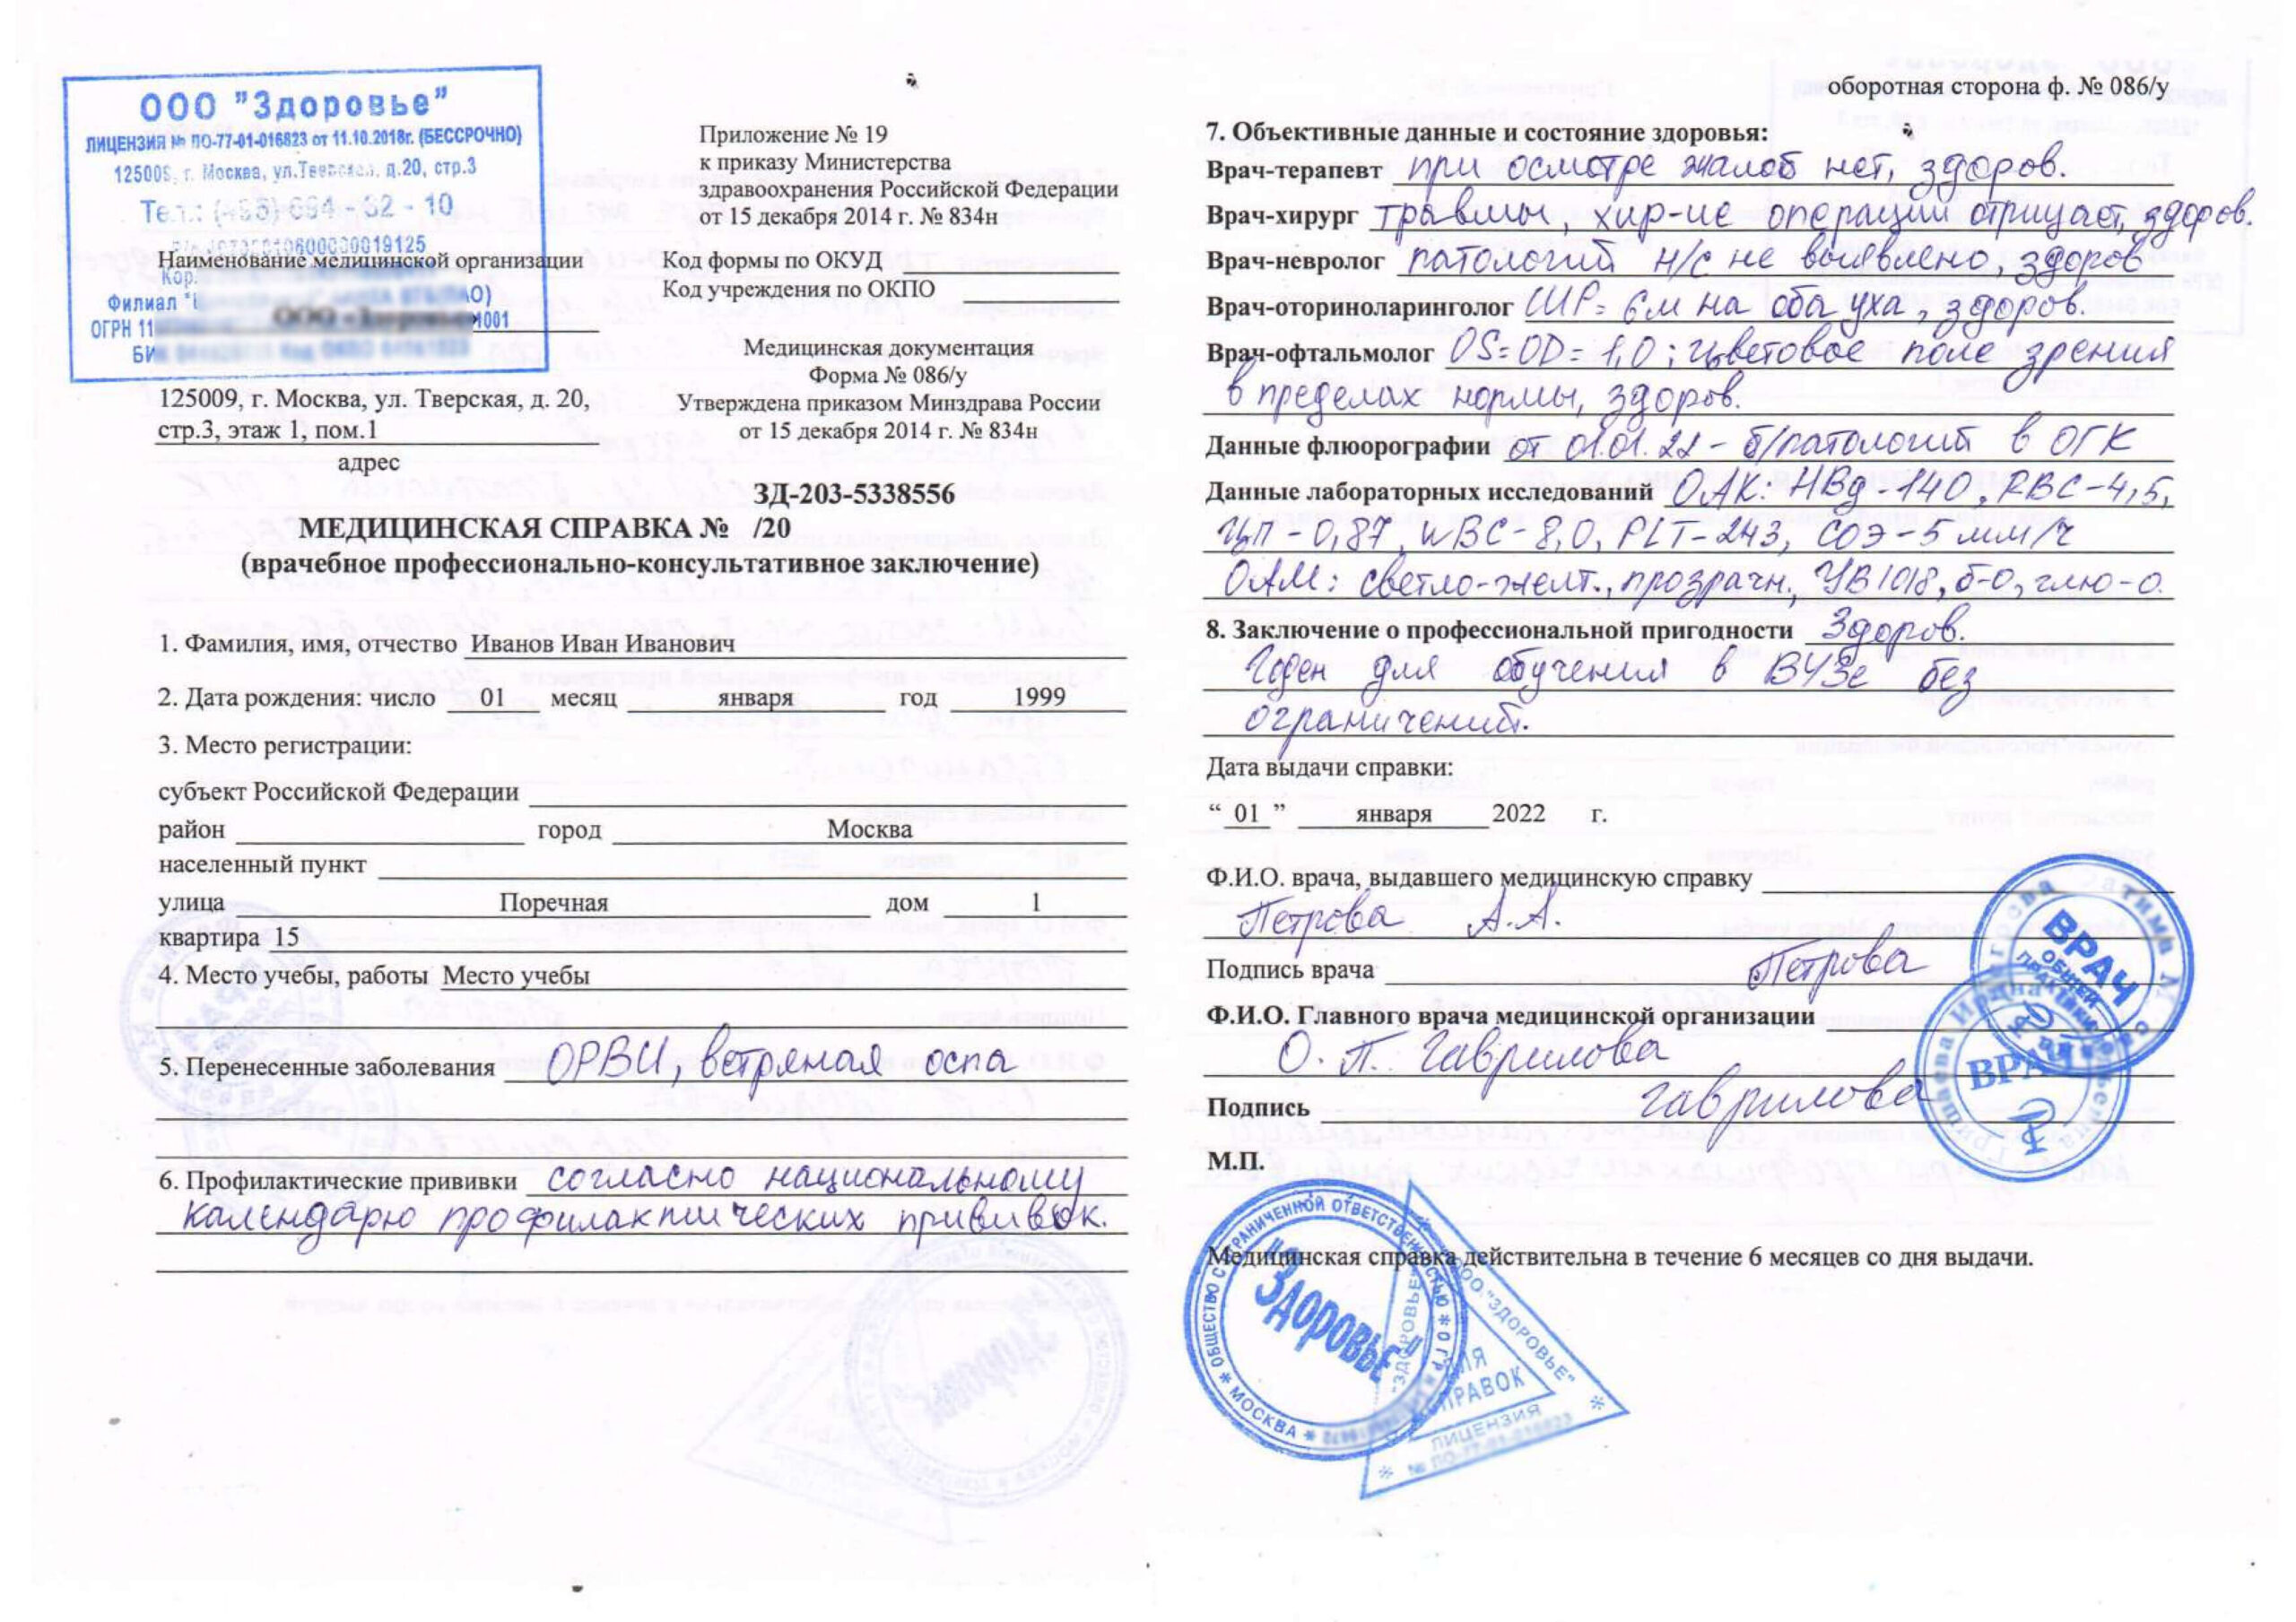 ООО "Здоровье"
ЛИЦЕНЗИЯ № ПО-77-01-016823 от 11.10.2018г. (БЕССРОЧНО)
125009, г. Москва, ул.Тверская, д.20, стр.3
Тел.: 694 - 62 - 10
Наименование медицинской организации
Кор.
Филиал
ОГРН 11
БИ
ООО «Здоровье»
125009, г. Москва, ул. Тверская, д. 20,
стр.3, этаж 1, пом.1
адрес
Приложение № 19
к приказу Министерства
здравоохранения Российской Федерации
от 15 декабря 2014 г. № 834н
Код формы по ОКУД
Код учреждения по ОКПО
Медицинская документация
Форма № 086/у
Утверждена приказом Минздрава России
от 15 декабря 2014 г. № 834н
ЗД-203-5338556
МЕДИЦИНСКАЯ СПРАВКА № /20
(врачебное профессионально-консультативное заключение)
1. Фамилия, имя, отчество Иванов Иван Иванович
2. Дата рождения: число 01 месяц января год 1999
3. Место регистрации:
субъект Российской Федерации
район город Москва
населенный пункт
улица Поречная дом 1
квартира 15
4. Место учебы, работы Место учебы
5. Перенесенные заболевания ОРВИ, ветряная оспа
6. Профилактические прививки согласно национальному
календарю профилактических прививок.
оборотная сторона ф. № 086/у
7. Объективные данные и состояние здоровья:
Врач-терапевт при осмотре жалоб нет, здоров.
Врач-хирург травмы, хир-ие операции отрицает, здоров.
Врач-невролог патологий н/с не выявлено, здоров
Врач-оториноларинголог ШР= 6м на оба уха, здоров.
Врач-офтальмолог OS=OD= 1,0; цветовое поле зрения
в пределах нормы, здоров.
Данные флюорографии от 01.01.22 - б/патологий в ОГК
Данные лабораторных исследований ОАК: HBg-140, RBC-4,5,
ЦП-0,87, WBC-8,0, PLT-243, СОЭ-5 мм/ч
ОАМ: светло-желт., прозрачн., УВ1018, б-о, глю-о.
8. Заключение о профессиональной пригодности Здоров.
Годен для обучения в ВУЗе без
ограничений.
Дата выдачи справки:
“ 01 ” января 2022 г.
Ф.И.О. врача, выдавшего медицинскую справку
Петрова А.А.
Подпись врача Петрова
Ф.И.О. Главного врача медицинской организации
О. П. Гаврилова
Подпись Гаврилова
М.П.
Медицинская справка действительна в течение 6 месяцев со дня выдачи.
ВРАЧ
ОБЩЕЙ
ПРАКТИКИ
ВРАЧ
ОБЩЕСТВО С ОГРАНИЧЕННОЙ ОТВЕТСТВЕННОСТЬЮ * ОГРН
* МОСКВА *
"Здоровье"
ООО "ЗДОРОВЬЕ"
"ЗДОРОВЬЕ"
ДЛЯ
СПРАВОК
ЛИЦЕНЗИЯ
№ ПО-77-01-016823